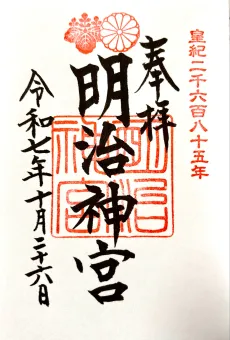 皇紀二千六百八十五年
奉拝
明治神宮
明治神宮
令和七年十月二十六日